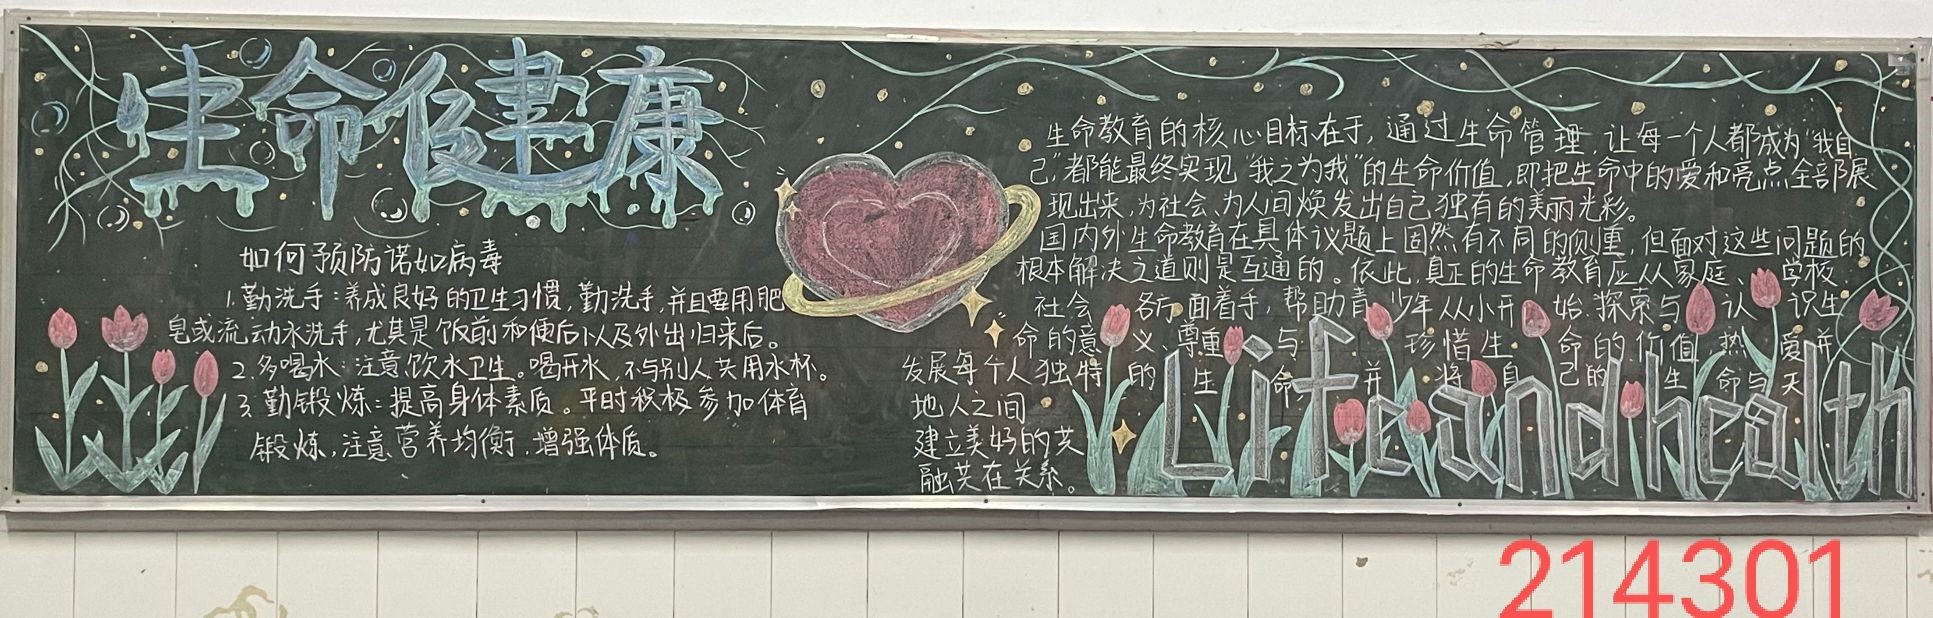 生命健康
如何预防诺如病毒
1.勤洗手:养成良好的卫生习惯,勤洗手,并且要用肥
皂或流动水洗手,尤其是饭前和便后以及外出归来后。
2.多喝水:注意饮水卫生。喝开水,不与别人共用水杯。
3.勤锻炼:提高身体素质。平时积极参加体育
锻炼,注意营养均衡,增强体质。
生命教育的核心目标在于,通过生命管理,让每一个人都成为“我自
己”,都能最终实现“我之为我”的生命价值,即把生命中的爱和亮点全部展
现出来,为社会、为人间焕发出自己独有的美丽光彩。
国内外生命教育在具体议题上固然有不同的侧重,但面对这些问题的
根本解决之道则是互通的。依此,真正的生命教育应从家庭、学校、
社会各方面着手,帮助青少年从小开始探索与认识生
命的意义、尊重与珍惜生命的价值,热爱并
发展每个人独特的生命,并将自己的生命与天
地人之间
建立美好的共
融共在关系。
Life and health
214301